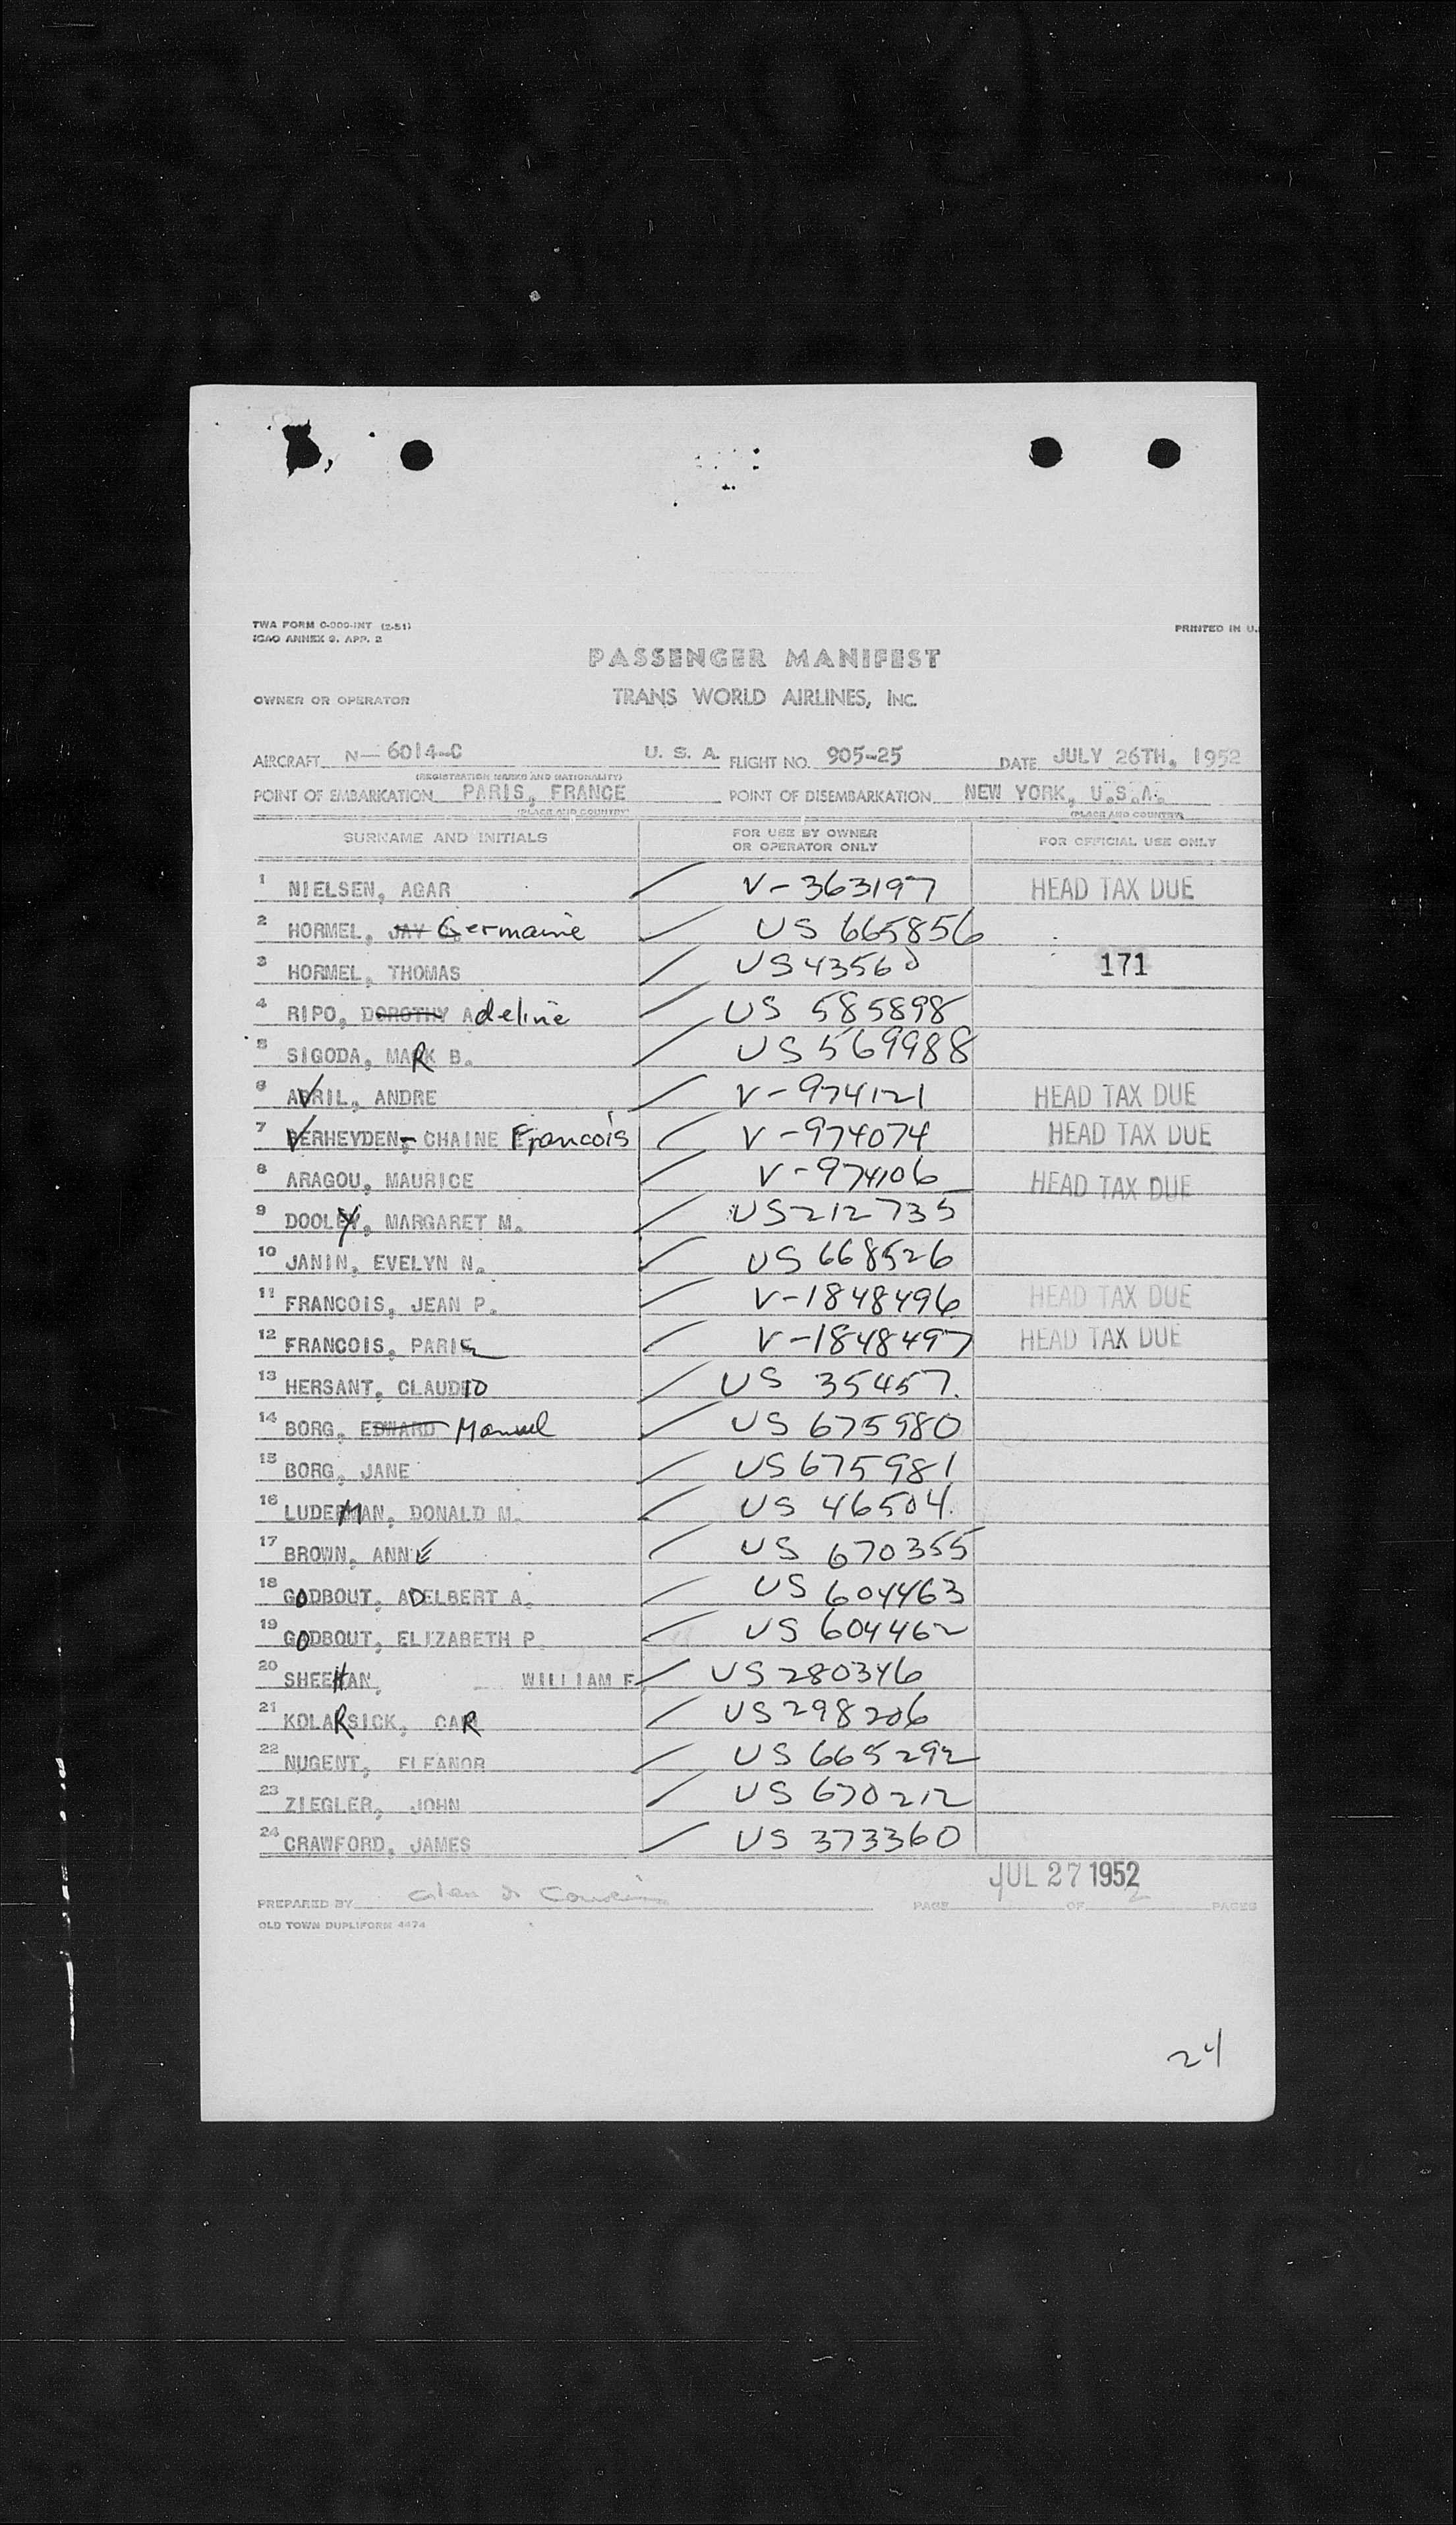 TWA FORM C-300-INT (2-51)
ICAO ANNEX 9. APP. 2
PRINTED IN U.
PASSENGER MANIFEST
OWNER OR OPERATOR TRANS WORLD AIRLINES, INC.
AIRCRAFT N— 6014-C U. S. A. FLIGHT NO. 905-25 DATE JULY 26TH, 1952
(REGISTRATION MARKS AND NATIONALITY)
POINT OF EMBARKATION PARIS, FRANCE POINT OF DISEMBARKATION NEW YORK, U.S.A.
(PLACE AND COUNTRY) (PLACE AND COUNTRY)
SURNAME AND INITIALS FOR USE BY OWNER OR OPERATOR ONLY FOR OFFICIAL USE ONLY
1 NIELSEN, AGAR V-363197 HEAD TAX DUE
2 HORMEL, JAY Germaine US 665856
3 HORMEL, THOMAS US 4356 171
4 RIPO, DOROTHY Adeline US 585898
5 SIGODA, MARK B. US 569988
6 AVRIL, ANDRE V-974121 HEAD TAX DUE
7 VERHEYDEN-CHAINE Francois V-974074 HEAD TAX DUE
8 ARAGOU, MAURICE V-974106 HEAD TAX DUE
9 DOOLEY, MARGARET M. US 212735
10 JANIN, EVELYN N. US 668526
11 FRANCOIS, JEAN P. V-1848496 HEAD TAX DUE
12 FRANCOIS, PARIS V-1848497 HEAD TAX DUE
13 HERSANT, CLAUDIO US 35457.
14 BORG, EDWARD Manuel US 675980
15 BORG, JANE US 675981
16 LUDEMAN, DONALD M. US 46504.
17 BROWN, ANNE US 670355
18 GODBOUT, ADELBERT A. US 604463
19 GODBOUT, ELIZABETH P. US 604462
20 SHEEHAN, WILLIAM F. US 280346
21 KOLARSICK, CAR US 298206
22 NUGENT, ELEANOR US 665292
23 ZIEGLER, JOHN US 670212
24 CRAWFORD, JAMES US 373360
JUL 27 1952
PREPARED BY PAGE OF 2 PAGES
OLD TOWN DUPLIFORM 4474
24